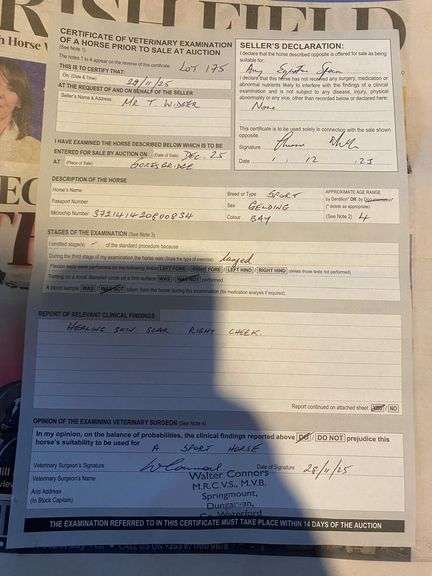 FIELD
CERTIFICATE OF VETERINARY EXAMINATION
OF A HORSE PRIOR TO SALE AT AUCTION
(See Note 1)
LOT 175
THIS IS TO CERTIFY THAT:
On (Date & Time) 28/11/25
AT THE REQUEST OF AND ON BEHALF OF THE SELLER
Seller's Name & Address
MR T. WIDGER
SELLER'S DECLARATION:
I declare that the horse described opposite is offered for sale as being
suitable for:
Any
I declare that this horse has not received any surgery, medication or
abnormal nutrients likely to interfere with the findings of a clinical
examination and is not subject to any disease, injury, physical
abnormality or any vice, other than recorded below or declared here:
None
This certificate is to be used solely in connection with the sale shown
opposite.
Signature
Date 1 / 12 25
I HAVE EXAMINED THE HORSE DESCRIBED BELOW WHICH IS TO BE
ENTERED FOR SALE BY AUCTION ON (Date of Sale) DEC. 25
AT (Place of Sale) GORESBRIDGE
DESCRIPTION OF THE HORSE
Horse's Name
Breed or Type SPORT
APPROXIMATE AGE RANGE
Passport Number
Sex GELDING
(* delete as appropriate)
Microchip Number 372141420800834
Colour BAY
(See Note 2) 4
STAGES OF THE EXAMINATION (See Note 3)
I omitted stage(s) of the standard procedure because
During the third stage of my examination the horse was (State the type of exercise) lunged
LEFT FORE RIGHT FORE LEFT HIND RIGHT HIND
WAS WAS NOT
REPORT OF RELEVANT CLINICAL FINDINGS
HEALING SKIN SCAR RIGHT CHEEK.
Report continued on attached sheet YES / NO
OPINION OF THE EXAMINING VETERINARY SURGEON (See Note 4)
In my opinion, on the balance of probabilities, the clinical findings reported above DO / DO NOT prejudice this
horse's suitability to be used for
A SPORT HORSE
Veterinary Surgeon's Signature W Connors Date of Signature 28/11/25
Veterinary Surgeon's Name
And Address
(In Block Capitals)
Walter Connors
M.R.C.V.S., M.V.B.
Springmount,
Dungarvan,
Co. Waterford
THE EXAMINATION REFERRED TO IN THIS CERTIFICATE MUST TAKE PLACE WITHIN 14 DAYS OF THE AUCTION